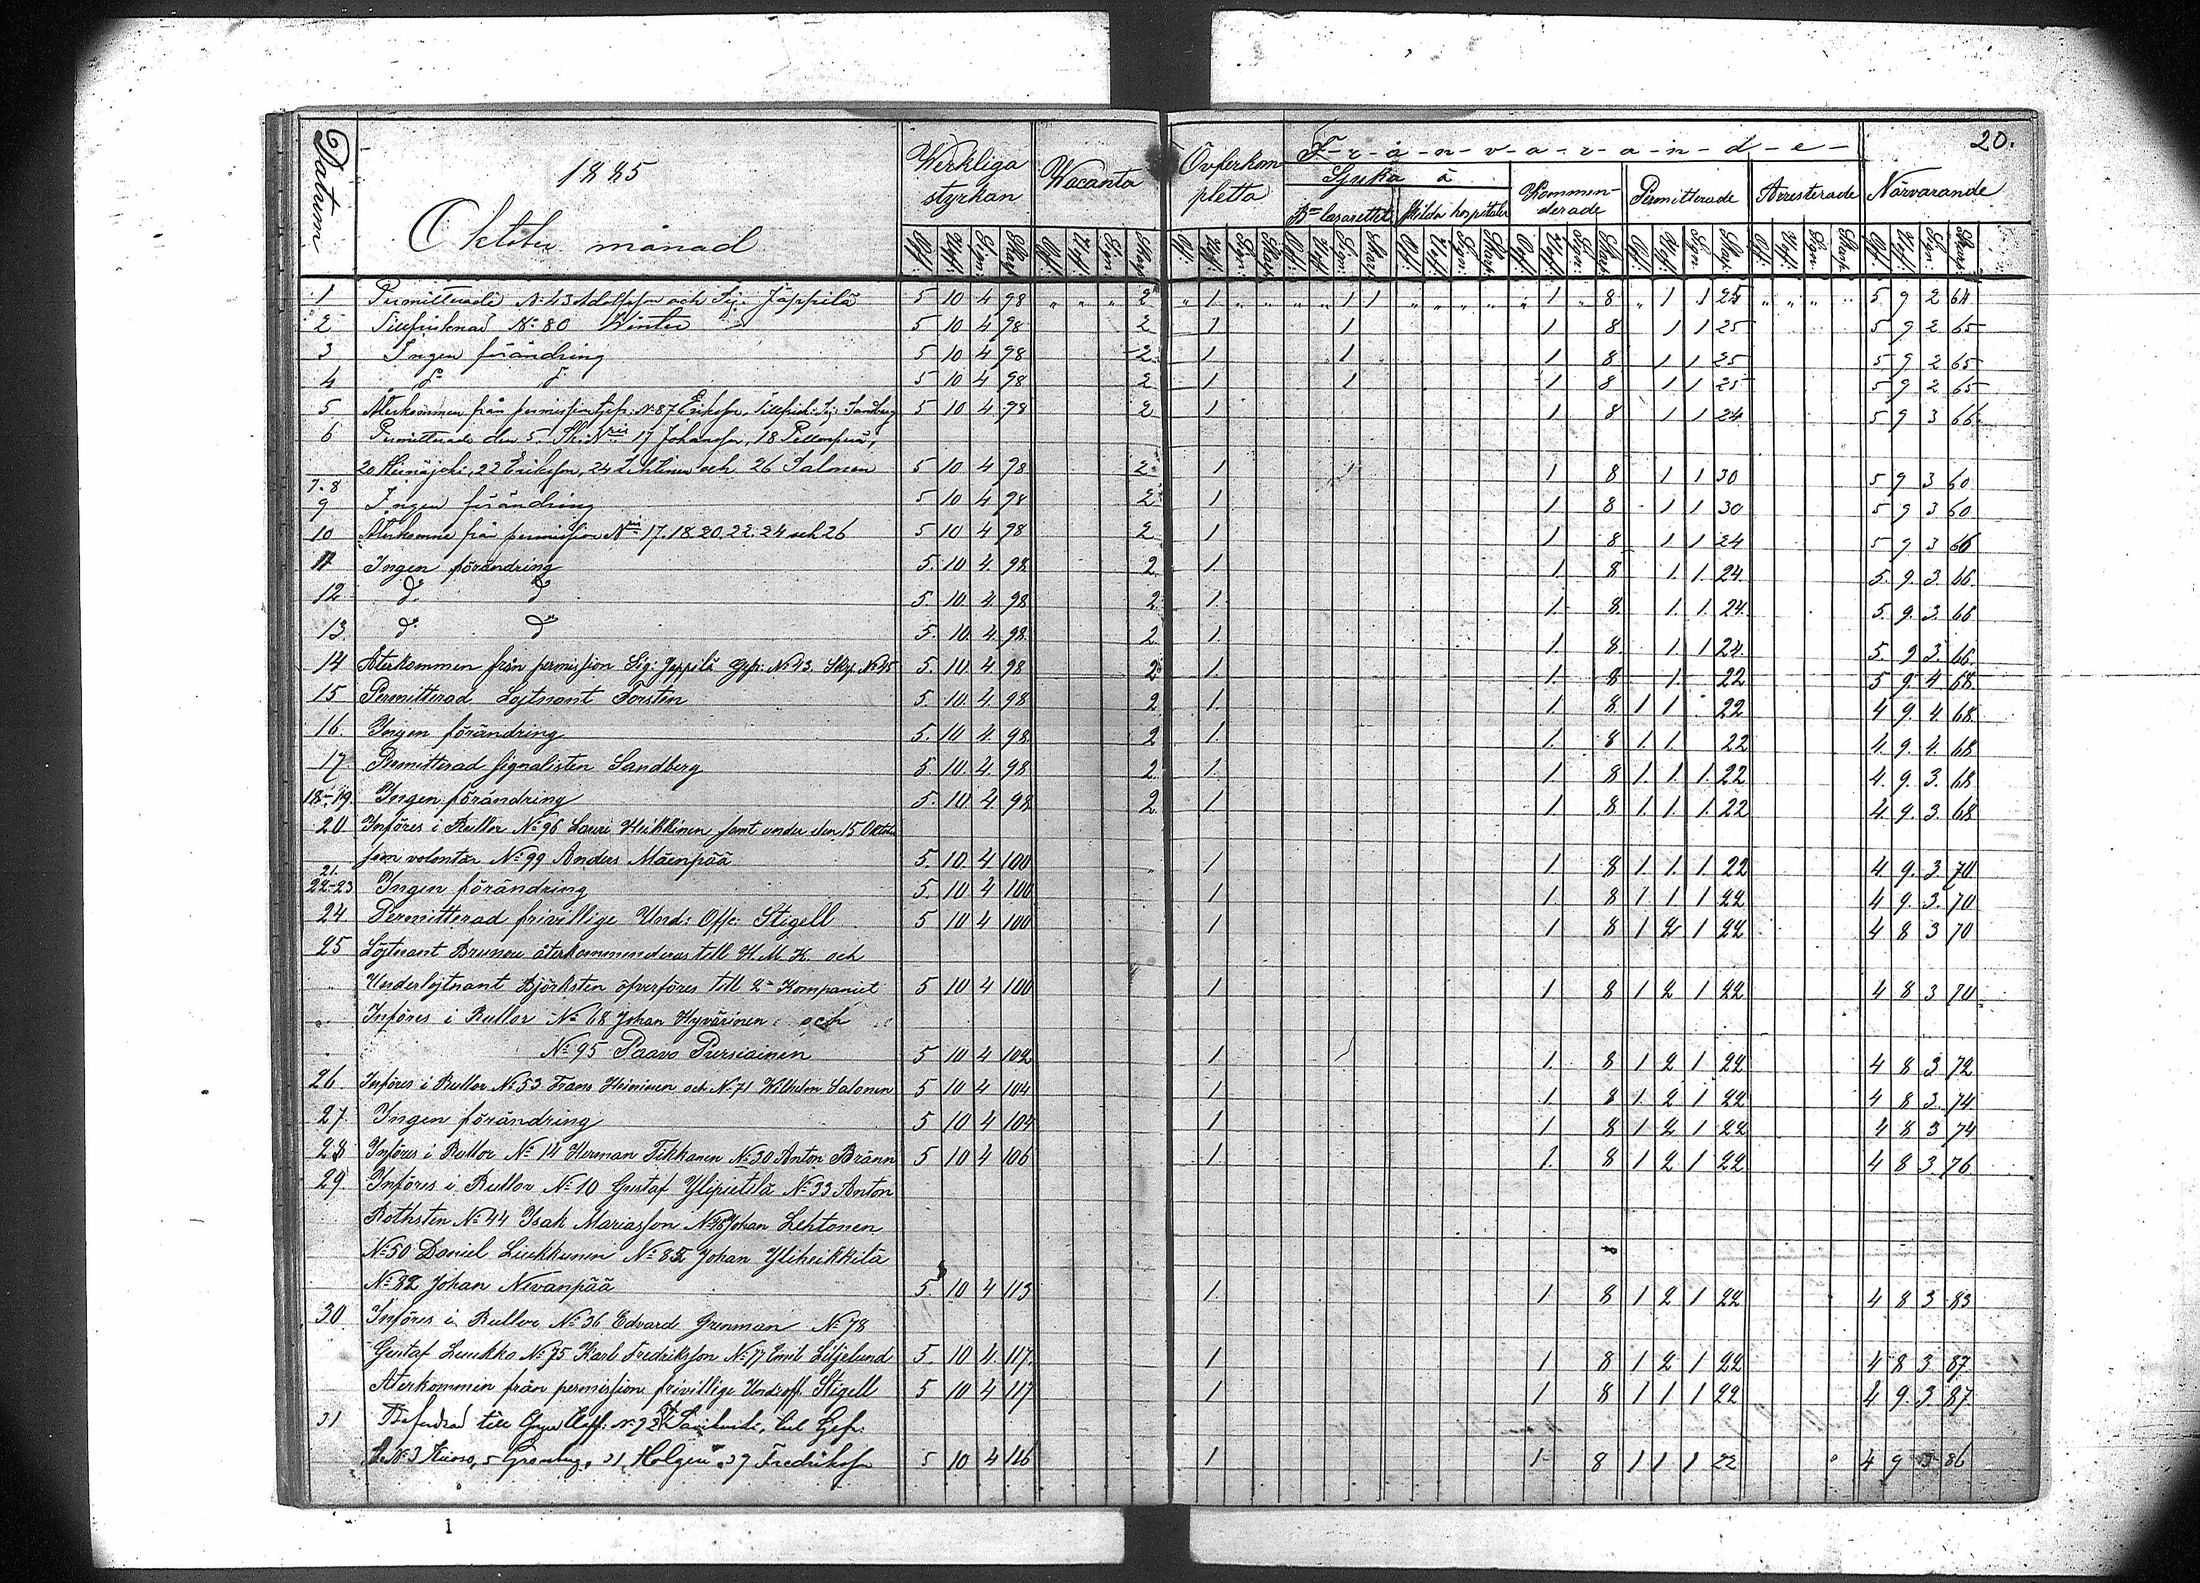 20.
Datum
1885
Oktober månad
Werkliga styrkan
Wacanta
Öfverkompletta
F-r-å-n-v-a-r-a-n-d-e
Sjuka å
Bns lasarettet
Skilda hospitaler
Kommenderade
Permitterade
Arresterade
Närvarande
1 Permitterade No 43 Adolfsson och Sig: Jäppilä 5 10 4 98 " " " 2 " 1 " " " " 1 1 " " " " " 1 " 8 " 1 1 25 " " " " 5 9 2 64
2 Tillfrisknad No 80 Winter 5 10 4 98 2 1 1 1 8 1 1 25 5 9 2 65
3 Ingen förändring 5 10 4 98 2 1 1 1 8 1 1 25 5 9 2 65
4 do do 5 10 4 98 2 1 1 1 8 1 1 25 5 9 2 65
5 Återkommen från permission Gefr: No 87 Eriksson, Tillfrisk: Sig: Sandberg 5 10 4 98 2 1 1 8 1 1 24 5 9 3 66
6 Permitterade den 5. Sk: Nris 17 Johansson, 18
20 22 Eriksson, 24 Lehtinen och 26 Salonen 5 10 4 98 2 1 1 8 1 1 30 5 9 3 60
7. 8 9 Ingen förändring 5 10 4 98 2 1 1 8 1 1 30 5 9 3 60
10 Återkomne från permission Nris 17. 18. 20. 22. 24 och 26 5 10 4 98 2 1 1 8 1 1 24 5 9 3 66
11 Ingen förändring 5. 10 4. 98 2 1. 1. 8 1. 1. 24. 5. 9. 3. 66.
12 do do 5. 10. 4. 98 2 1. 1. 8. 1. 1. 24. 5. 9. 3. 66
13. do do 5. 10. 4. 98. 2. 1. 1. 8. 1. 1 24. 5. 9 3. 66.
14 Återkommen från permission Sig: Jeppilä Gefr: No 43. Skp. No 45 5. 10. 4. 98 2 1. 1. 8 1. 22. 5 9. 4 68.
15 Permitterad Lojtnant Forsten 5. 10. 4. 98 2 1. 1. 8. 1. 1 22 4 9. 4. 68.
16 Ingen förändring 5. 10 4. 98 2 1. 1. 8 1. 1. 22 4. 9. 4. 68
17 Permitterad signalisten Sandberg 5. 10. 4. 98 2. 1. 1. 8 1. 1. 1. 22 4. 9. 3. 68
18-19. Ingen förändring 5. 10 4. 98 2 1 1. 8. 1. 1. 1. 22 4. 9. 3. 68
20 Införes i Rullor No 96 Lauri Heikkinen samt under den 15 Oktober
som volontär No 99 Anders Mäenpää 5. 10. 4 100 1 1. 8 1. 1. 1 22 4 9. 3. 70
21. 22-23 Ingen förändring 5. 10 4 100 1 1. 8 1. 1 1 22 4 9. 3. 70
24 Permitterad frivillige Und: Offc: Stigell 5 10 4 100 1 1 8 1 2 1 22 4 8 3 70
25 Löjtnant Brunou återkommenderas till H. M. K. och
Underlöjtnant Björksten öfverföres till 2a Kompaniet 5 10 4 100 1 1 8 1 2 1 22 4 8 3 70
Införes i Rullor No 68 Johan Hyvärinen: och
No 95 Paavo Pursiainen 5 10 4 102 1 1. 8 1 2 1 22 4 8 3 72
26 Införes i Rullor No 53 Frans Heininen och No 71 Wilhelm Salonen 5 10 4 104 1 1 8 1. 2 1 22 4 8 3. 74
27 Ingen förändring 5 10 4 104 1 1. 8 1 2 1 22 4 8 3 74
28 Införes i Rullor No 14 Herman Tikkanen No 30 Anton Bränn 5 10 4 106 1 1. 8 1 2 1 22 4 8 3 76
29 Införes i Rullor No 10 Gustaf Ylipietilä No 33 Anton
Rothsten No 44 Isak Mariasson No 46 Johan Lehtonen
No 50 Daniel Liukkunen No 85 Johan Yliheikkilä
No 82 Johan Nivanpää 5 10 4 113 1 1 8 1 2 1 22 4 8 3 83
30 Införes i Rullor No 36 Edvard Grenman No 78
Gustaf Luukko No 75 Karl Fredriksson No 77 Emil Liljelund 5. 10 4. 117. 1 1 8 1 2 1 22 4 8 3 87
Återkommen från permission frivillige Undroff. Stigell 5 10 4 117 1 1 8 1 1 1 22 4 9. 3 87
31 Befordrad till No 92 till Gefr:
No 3 5 31 Holgen 39 Fredriksson 5 10 4 116 1 1 8 1 1 1 22 4 9 3 86
1